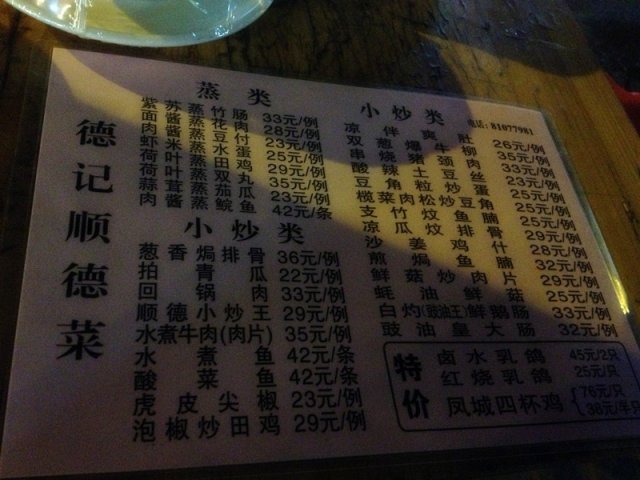 德记顺德菜
蒸类
紫苏蒸竹肠 33元/例
面酱蒸花肉 28元/例
肉酱蒸豆付 23元/例
虾米蒸水蛋 25元/例
荷叶蒸田鸡 29元/例
荷叶蒸双丸 35元/例
蒜茸蒸茄瓜 23元/例
肉酱蒸鲩鱼 42元/条
小炒类
葱香焗排骨 36元/例
拍青瓜 22元/例
回锅肉 33元/例
顺德小炒王 29元/例
水煮牛肉(肉片) 35元/例
水煮鱼 42元/条
酸菜鱼 42元/条
虎皮尖椒 23元/例
泡椒炒田鸡 29元/例
小炒类
电话:81077981
凉伴爽肚 26元/例
双葱爆牛柳 35元/例
串烧猪颈肉 33元/例
酸辣土豆丝 23元/例
豆角粒炒蛋 25元/例
榄菜肉松炒豆角 25元/例
支竹炆鱼腩 25元/例
凉瓜炆排骨 29元/例
沙姜鸡什 28元/例
煎焗鱼腩 32元/例
鲜菇炒肉片 29元/例
蚝油鲜菇 25元/例
白灼(豉油王)鲜鹅肠 33元/例
豉油皇大肠 32元/例
特价
卤水乳鸽 45元/2只
红烧乳鸽 25元/只
凤城四杯鸡 76元/只
38元/半只